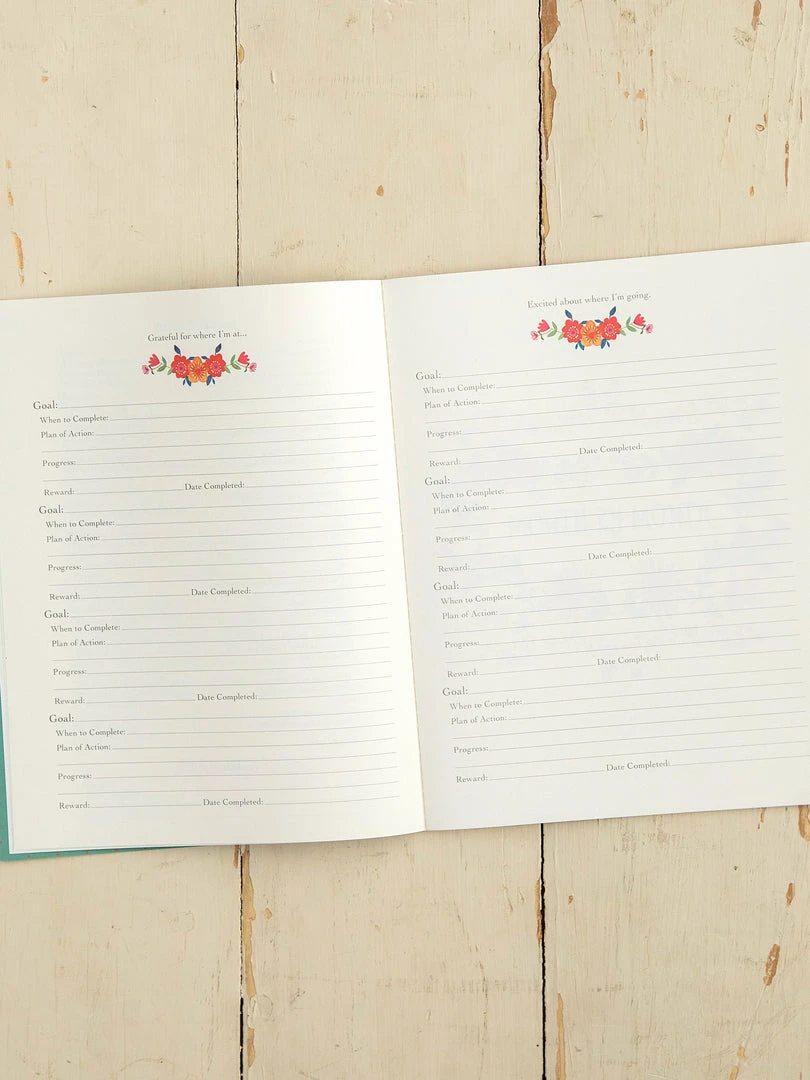 Grateful for where I'm at...
Goal:
When to Complete:
Plan of Action:
Progress:
Reward: Date Completed:
Goal:
When to Complete:
Plan of Action:
Progress:
Reward: Date Completed:
Goal:
When to Complete:
Plan of Action:
Progress:
Reward: Date Completed:
Goal:
When to Complete:
Plan of Action:
Progress:
Reward: Date Completed:
Excited about where I'm going.
Goal:
When to Complete:
Plan of Action:
Progress:
Reward: Date Completed:
Goal:
When to Complete:
Plan of Action:
Progress:
Reward: Date Completed:
Goal:
When to Complete:
Plan of Action:
Progress:
Reward: Date Completed:
Goal:
When to Complete:
Plan of Action:
Progress:
Reward: Date Completed: